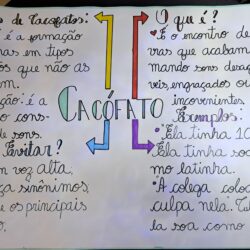 s de Cacofatos:
é a formação
as em tipos
os que não as
m.
ão: é a
o cons-
de sons.
Evitar?
m voz alta,
ça sinônimos
e os principais
o.
CACÓFATO
O que é?
É o encontro de
vras que acabam
mando sons desag
veis, engraçados ou
inconvenientes.
Exemplos:
"Ela tinha 10
Ela tinha soa
mo latinha.
"A colega colo
culpa nela."
la soa como